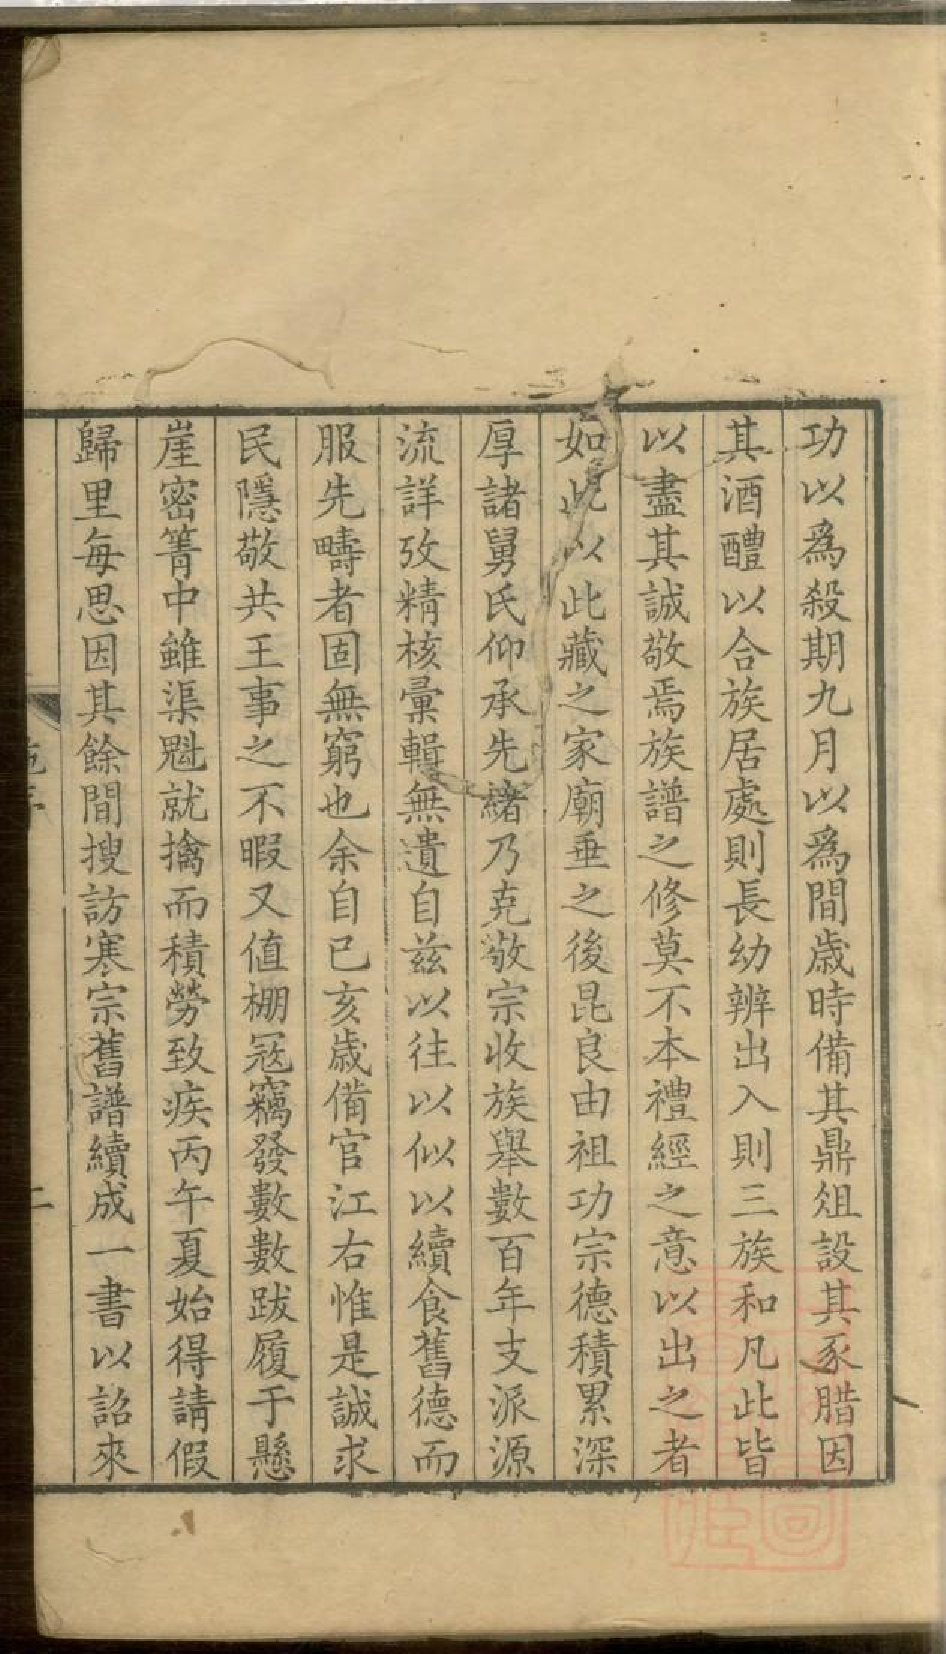 功以爲殺期九月以爲間歲時備其鼎俎設其豕腊因
其酒醴以合族居處則長幼辨出入則三族和凡此皆
以盡其誠敬焉族譜之修莫不本禮經之意以出之者
如此以此藏之家廟垂之後昆良由祖功宗德積累深
厚諸舅氏仰承先緒乃克敬宗收族舉數百年支派源
流詳攷精核彙輯無遺自茲以往以似以續食舊德而
服先疇者固無窮也余自已亥歲備官江右惟是誠求
民隱敬共王事之不暇又值棚寇竊發數數跋履于懸
崖密箐中雖渠魁就擒而積勞致疾丙午夏始得請假
歸里每思因其餘間搜訪寒宗舊譜續成一書以詔來
二